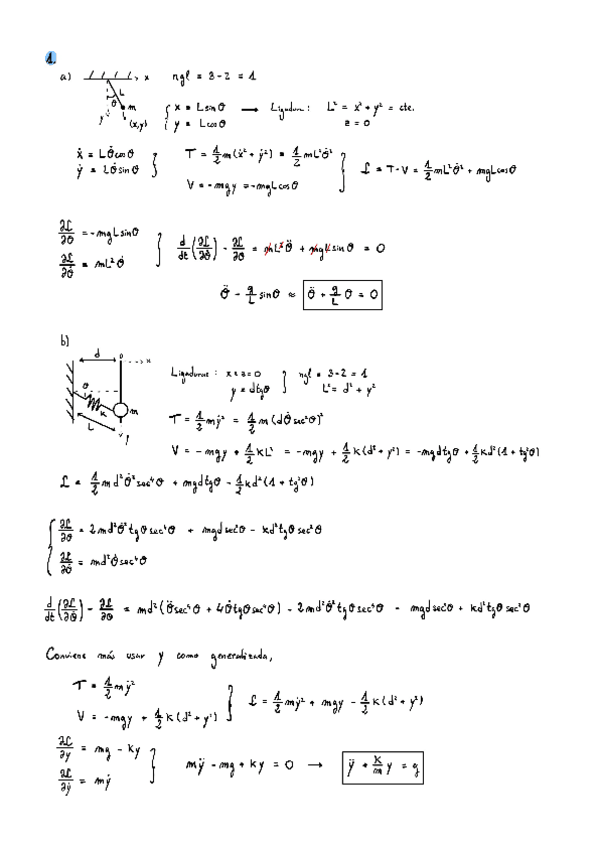 1.
a) x ngl = 3-2 = 1
θ L m
y (x,y)
{ x = L sinθ → Ligadura: L² = x² + y² = cte.
y = L cosθ z = 0
ẋ = Lθ̇ cosθ
ẏ = Lθ̇ sinθ
T = 1/2 m(ẋ² + ẏ²) = 1/2 mL²θ̇²
V = -mgy = -mgL cosθ
ℒ = T-V = 1/2 mL²θ̇² + mgL cosθ
∂ℒ/∂θ = -mgL sinθ
∂ℒ/∂θ̇ = mL²θ̇
d/dt(∂ℒ/∂θ̇) - ∂ℒ/∂θ = mL²θ̈ + mgL sinθ = 0
θ̈ - g/L sinθ ≈ θ̈ + g/L θ = 0
b)
d 0 --> x
θ K m
L y
Ligaduras: x = z = 0 } ngl = 3-2 = 1
y = d tgθ L² = d² + y²
T = 1/2 mẏ² = 1/2 m (dθ̇ sec²θ)²
V = -mgy + 1/2 kL² = -mgy + 1/2 k(d² + y²) = -mgd tgθ + 1/2 kd²(1 + tg²θ)
ℒ = 1/2 md²θ̇² sec⁴θ + mgd tgθ - 1/2 kd²(1 + tg²θ)
{ ∂ℒ/∂θ = 2md²θ̇² tgθ sec⁴θ + mgd sec²θ - kd² tgθ sec²θ
∂ℒ/∂θ̇ = md²θ̇ sec⁴θ
d/dt(∂ℒ/∂θ̇) - ∂ℒ/∂θ = md²(θ̈ sec⁴θ + 4θ̇ tgθ sec⁴θ) - 2md²θ̇² tgθ sec⁴θ - mgd sec²θ + kd² tgθ sec²θ
Conviene más usar y como generalizada,
T = 1/2 mẏ²
V = -mgy + 1/2 k(d² + y²)
ℒ = 1/2 mẏ² + mgy - 1/2 k(d² + y²)
∂ℒ/∂y = mg - ky
∂ℒ/∂ẏ = mẏ
mÿ - mg + ky = 0 → ÿ + k/m y = g